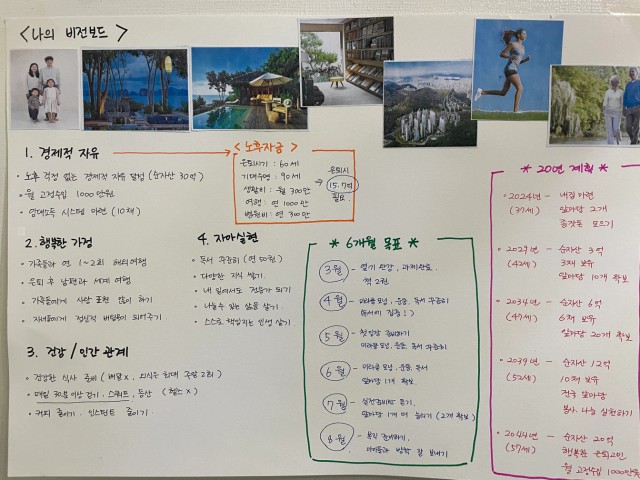 <나의 비전보드>
1. 경제적 자유
· 노후 걱정 없는 경제적 자유 달성 (순자산 30억)
· 월 고정수입 1000만원
· 임대소득 시스템 마련 (10채)
<노후자금>
은퇴시기 : 60세
기대수명 : 90세
생활비 : 월 300만
여행 : 연 1000만
병원비 : 연 300만
→ 은퇴시
15.7억
필요.
2. 행복한 가정
· 가족들과 연 1~2회 해외여행
· 은퇴 후 남편과 세계 여행
· 가족들에게 사랑 표현 많이 하기
· 자녀들에게 정신적 버팀목이 되어주기
4. 자아실현
· 독서 꾸준히 (연 50권)
· 다양한 지식 쌓기
· 내 일에서도 전문가 되기
· 나눌 수 있는 삶을 살기
· 스스로 책임지는 인생 살기
3. 건강 / 인간 관계
· 건강한 식사 준비 (배달 X, 외식은 최대 주말 2회)
· 매일 30분 이상 걷기, 스쿼트, 등산 (헬스 X)
· 커피 줄이기, 인스턴트 줄이기.
* 6개월 목표 *
3월 - 열기 완강, 과제완료,
책 2권
4월 - 미라클 모닝, 운동, 독서 꾸준히
(독서에 집중!)
5월 -
미라클 모닝, 운동, 독서 꾸준히
6월 - 미라클 모닝, 운동, 독서
앞마당 1개 확보
7월 - 실전준비반 듣기,
앞마당 1개 더 늘리기 (2개 확보)
8월 - 복직 준비하기,
아이들과 방학 잘 보내기
* 20년 계획 *
· 2024년 - 내집마련
(37세) 앞마당 2개
종잣돈 모으기
· 2029년 - 순자산 3억
(42세) 3채 보유
앞마당 10개 확보
· 2034년 - 순자산 6억
(47세) 6채 보유
앞마당 20개 확보
· 2039년 - 순자산 12억
(52세) 10채 보유
전국 앞마당
봉사, 나눔 실천하기
· 2044년 - 순자산 20억
(57세) 행복한 은퇴고민
월 고정수입 1000만원